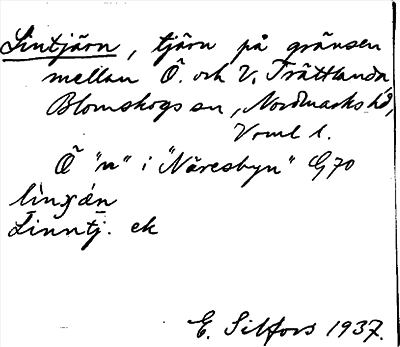 Lintjärn, tjärn på gränsen
mellan Ö. och V. Trättlanda,
Blomskogs sn, Nordmarks hd,
Vrml l.
Ö "n" i "Näresbyn" G70
Linntj. ek
E. Silfors 1937.